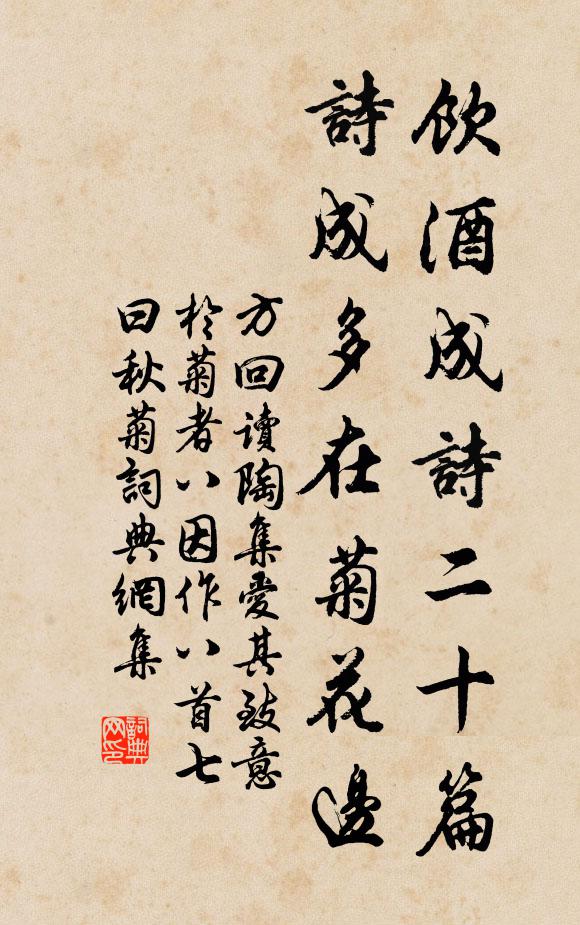 飲酒成詩二十篇
詩成多在菊花邊
方回讀陶集愛其致意
於菊者八因作八首七
曰秋菊詞典網集
詞典
网印